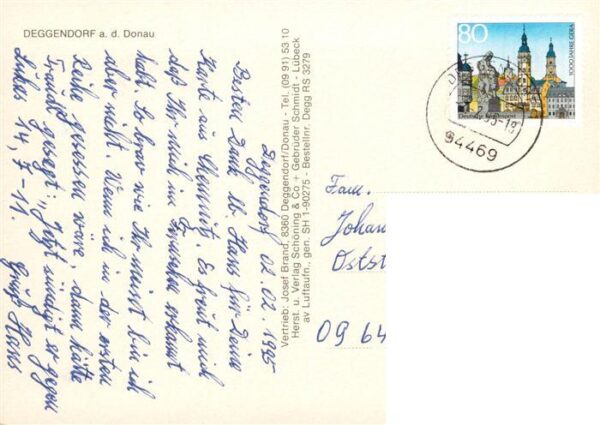 DEGGENDORF a. d. Donau
Deggendorf 02.02.1995
Besten Dank lb. Hans für Deine
Karte aus Chemnitz. Es freut mich
daß Ihr mich im Fernsehen erkannt
habt. So brav wie Ihr meint bin ich
aber nicht. Wenn ich in der ersten
Reihe gesessen wäre, dann hätte
Traudl gesagt: "Jetzt sündigt er gegen
Lukas 14, 7-11.
Gruß Hans
Vertrieb: Josef Brand, 8360 Deggendorf/Donau - Tel. (09 91) 53 10
Herst. u. Verlag Schöning & Co + Gebrüder Schmidt - Lübeck
av Luftaufn., gen. SH 1-90275 - Bestellnr. Degg RS 3279
80
1000 JAHRE GERA
Deutsche Bundespost
94469
Fam.
Johan
Oststr
09 64